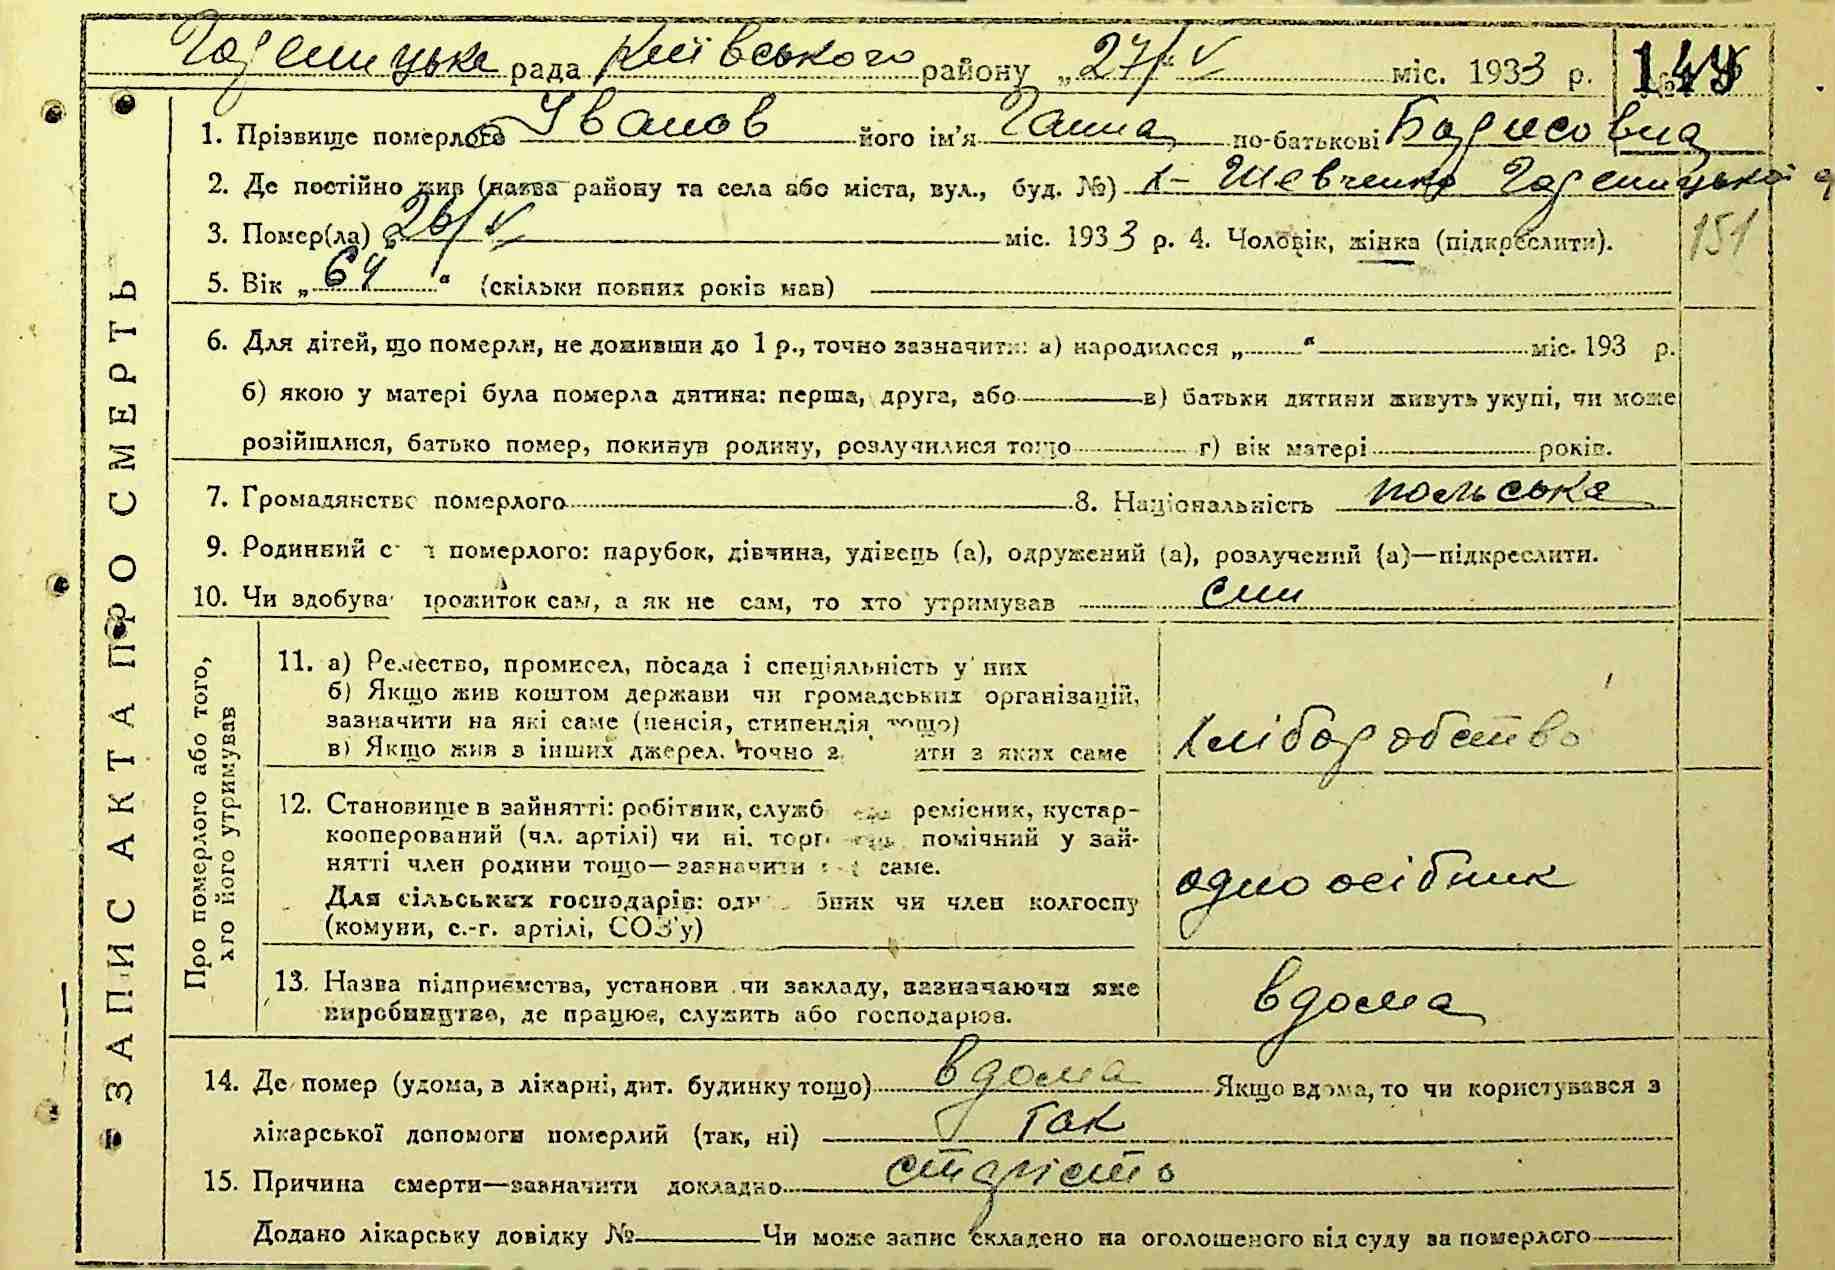 Гореницька рада Київського району „27/V міс. 1933 р. № 147
1. Прізвище померлого Іванов його ім'я Ганна по-батькові Борисовна
2. Де постійно жив (назва району та села або міста, вул., буд. №) х- Шевченко Гореницької
3. Помер(ла) „26/V міс. 1933 р. 4. Чоловік, жінка (підкреслити).
151
5. Вік „64“ (скільки повних років мав)
6. Для дітей, що померли, не доживши до 1 р., точно зазначити: а) народилося „ “ міс. 193 р.
б) якою у матері була померла дитина: перша, друга, або в) батьки дитини живуть укупі, чи може
розійшлися, батько помер, покинув родину, розлучилися тощо г) вік матері років.
7. Громадянство померлого 8. Національність польська
9. Родинний с н померлого: парубок, дівчина, удівець (а), одружений (а), розлучений (а)—підкреслити.
10. Чи здобува прожиток сам, а як не сам, то хто утримував син
ЗАПИС АКТА ПРО СМЕРТЬ
Про померлого або того,
хто його утримував
11. а) Ремество, промисел, посада і спеціяльність у них
б) Якщо жив коштом держави чи громадських організацій,
зазначити на які саме (пенсія, стипендія тощо)
в) Якщо жив з інших джерел, точно з ити з яких саме
хліборобство
12. Становище в зайнятті: робітник, служб ремісник, кустар-
кооперований (чл. артілі) чи ні, торг помічний у зай-
нятті член родини тощо—зазначити саме.
Для сільських господарів: одн бник чи член колгоспу
(комуни, с.-г. артілі, СОЗ'у)
одноосібник
13. Назва підприємства, установи чи закладу, зазначаючи яке
виробництво, де працює, служить або господарює.
вдома
14. Де помер (удома, в лікарні, дит. будинку тощо) вдома Якщо вдома, то чи користувався з
лікарської допомоги померлий (так, ні) так
15. Причина смерти—зазначити докладно старість
Додано лікарську довідку № Чи може запис складено на оголошеного від суду за померлого